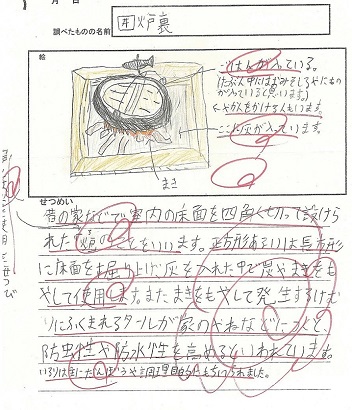 月 日
調べたものの名前 囲炉裏
絵
ごはんが入っている。
(たぶん中にはおみそしるやにもの
が入っていると思います。)
←やかんをかける人もいます。
ここに灰が入っています。
まき
せつめい
昔の家などで室内の床面を四角く切って設けら
れた炉のことをいいます。正方形あるいは長方形
に床面を掘り上げ、灰を入れた中で炭やまきをも
やして使用します。また まきをもやして発生するけむ
りにふくまれるタールが家のやねなどにつくと、
防虫性や防水性を高めるといわれています。
いろりは主にだんぼうや調理目的にもちいられました。